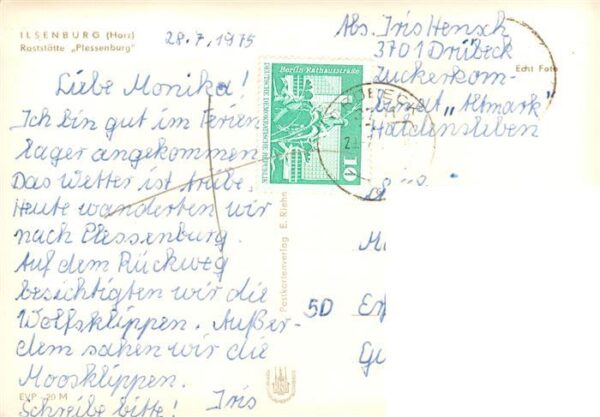 ILSENBURG (Harz)
Raststätte „Plessenburg"
28.7.1975
Liebe Monika!
Ich bin gut im Ferien
lager angekommen
Das Wetter ist trübe.
Heute wanderten wir
nach Plessenburg.
Auf dem Rückweg
besichtigten wir die
Wolfsklippen. Außer-
dem sahen wir die
Moosklippen.
Schreibe bitte! Iris
EVP -20 M
Abs. Iris Hensch
3701 Drübeck
Zuckerkom-
binat „Altmark"
Haldensleben
Echt Foto
Berlin Rathausstraße
DEUTSCHE DEMOKRATISCHE REPUBLIK
10
Postkartenverlag E. Riehn
5D